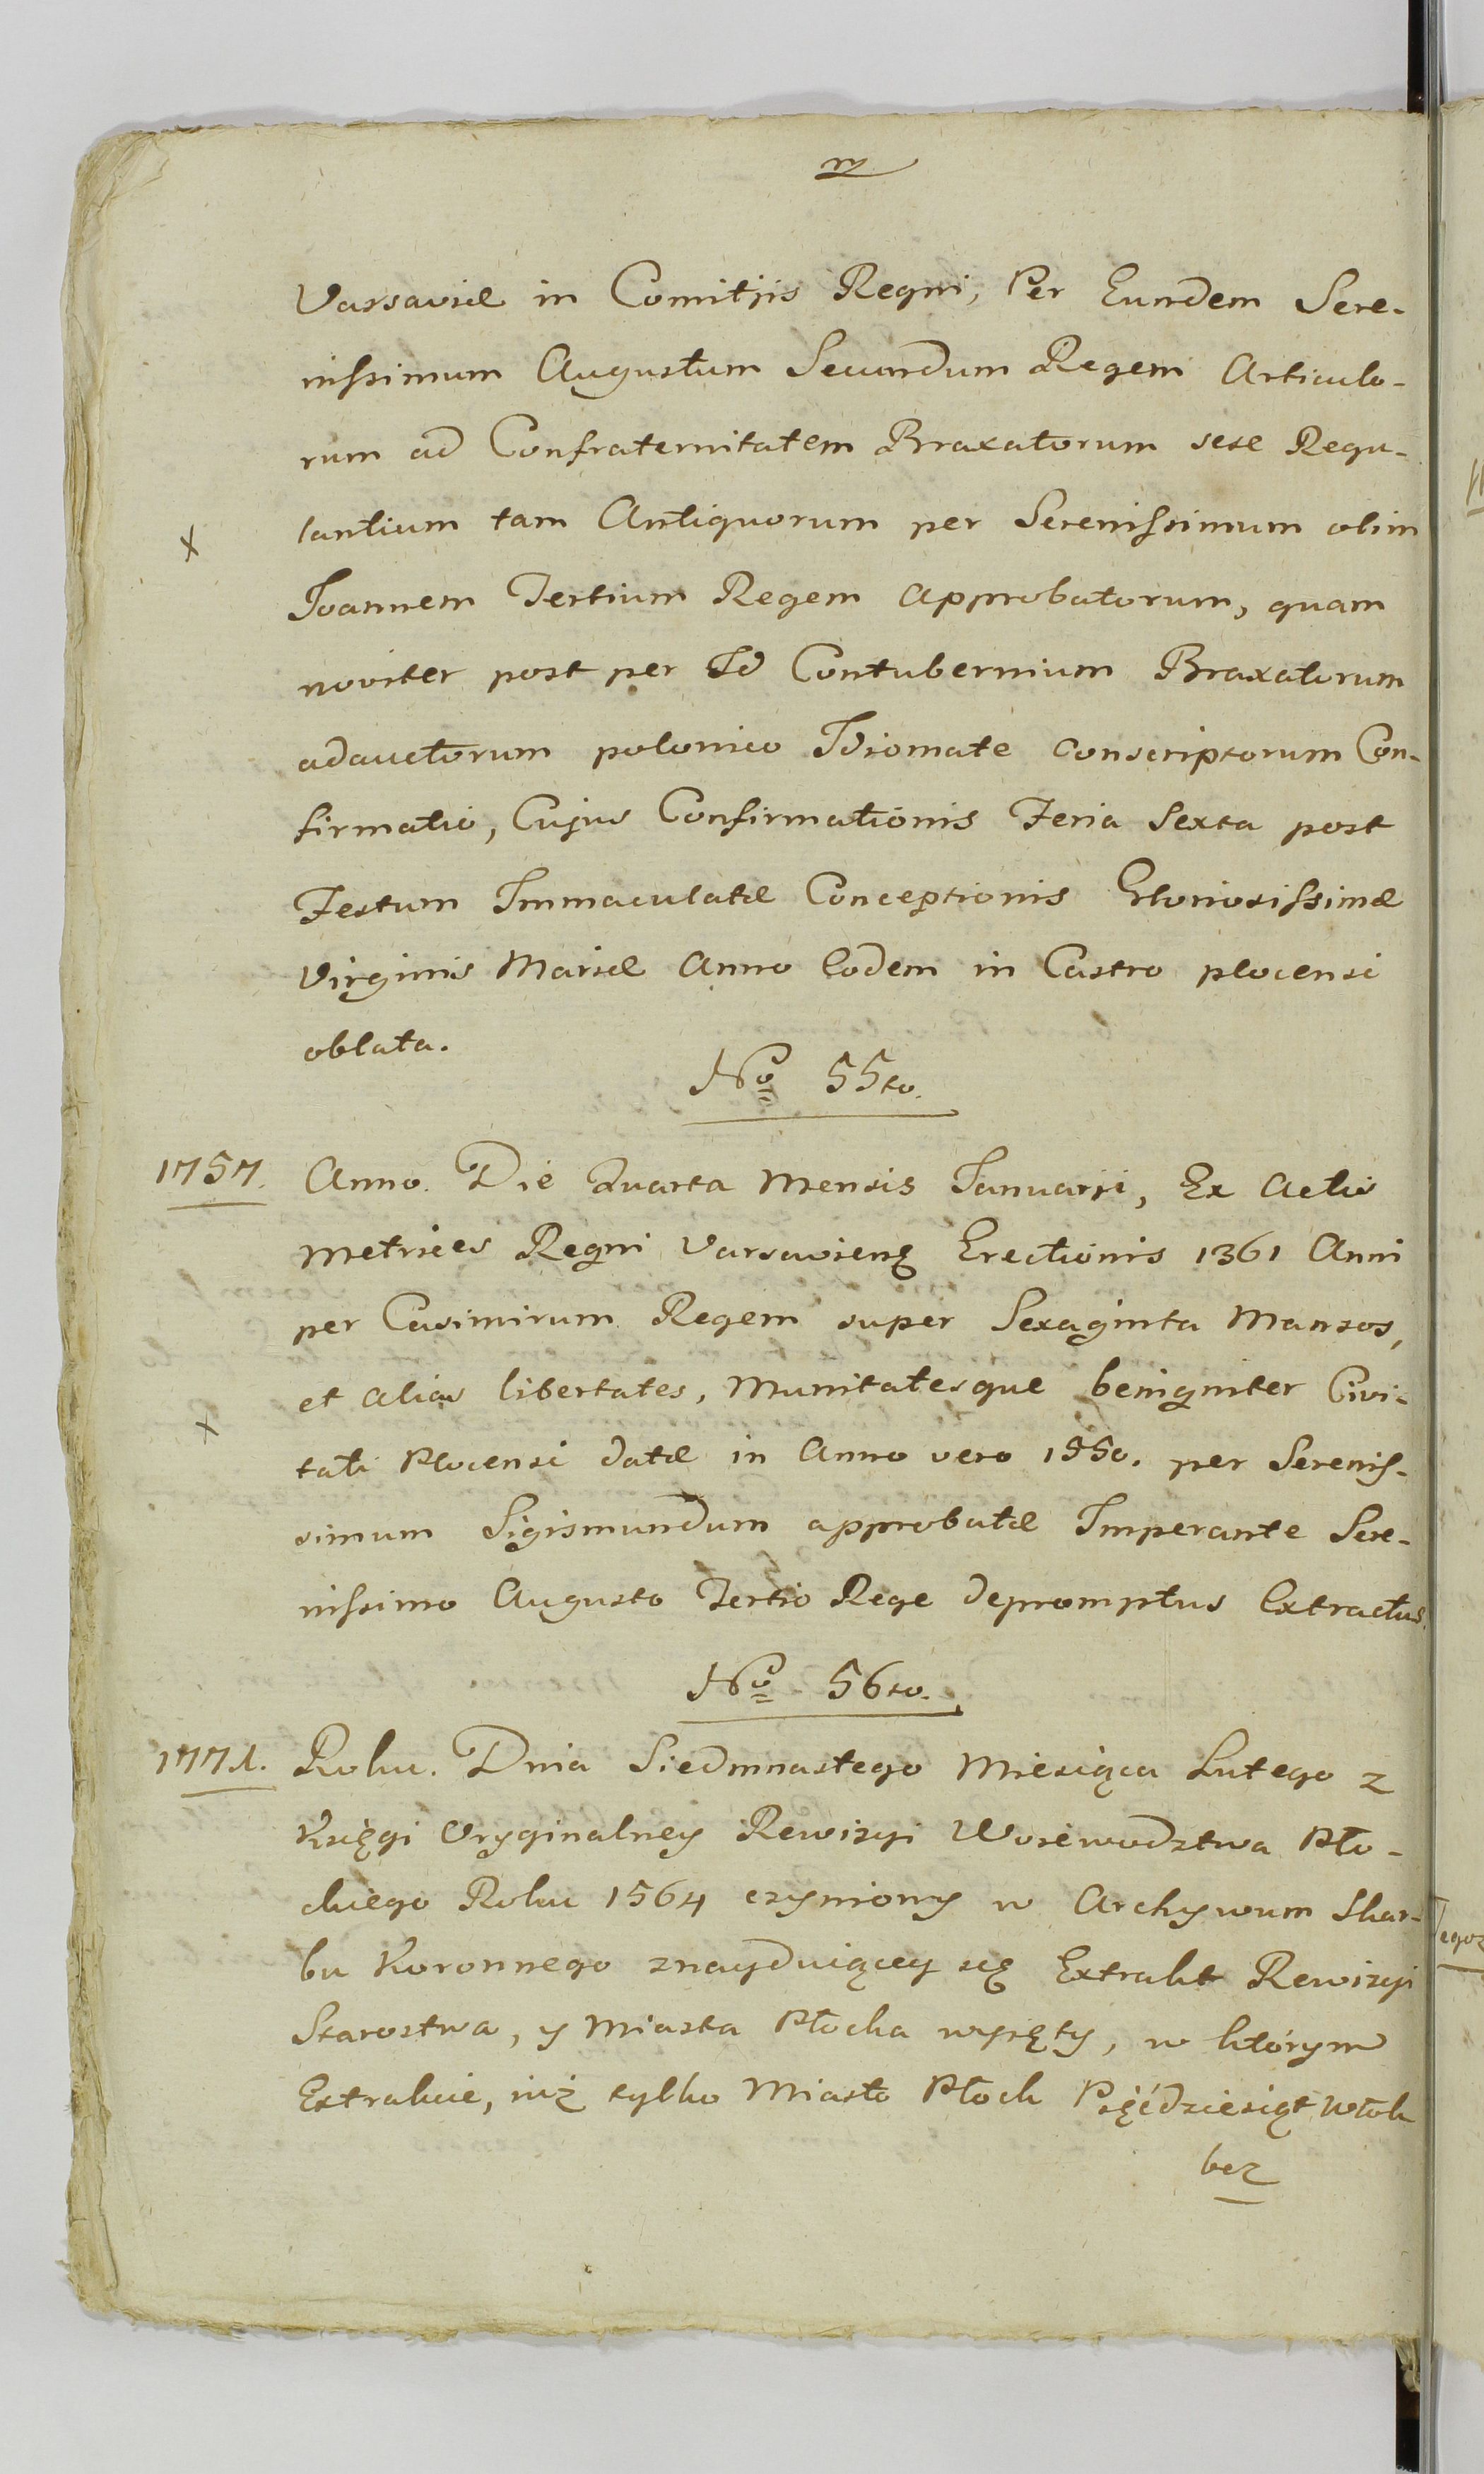 Varsaviæ in Comitijs Regni, Per Eundem Sere-
nissimum Augustum Secundum Regem Articulo-
rum ad Confraternitatem Braxatorum sese Regu-
lantium tam Antiquorum per Serenissimum olim
x
Joannem Tertium Regem approbatorum, quam
noviter post per Id Contubernium Braxatorum
adauctorum polonico Idiomate conscriptorum Con-
firmatio, Cujus Confirmationis Feria Sexta post
Festum Immaculatæ Conceptionis Gloriosissimæ
Virginis Mariæ Anno Eodem in Castro plocensi
oblata.
No 55to.
1757. Anno. Die Quarta Mensis Januarji, Ex Actis
Metrices Regni Varsaviens Erectionis 1361 Anni
per Casimirum Regem super Sexaginta Mansos,
et alias libertates, Munitatesque benigniter Civi-
x
tati Plocensi datæ in Anno vero 1550. per Serenis-
simum Sigismundum approbatæ Imperante Sere-
nissimo Augusto Tertio Rege depromptus Extractus.
No 56to.
1771. Roku. Dnia Siedmnastego Miesiąca Lutego z
Księgi Oryginalney Rewizyi Woiewodztwa Pło-
ckiego Roku 1564 czyniony w Archywum Skar-
bu Koronnego znayduiącey się Extrakt Rewizyi
Starostwa, y Miasta Płocka wyięty, w którym
Extrakcie, iuż tylko Miasto Płock Pięćdziesiąt Włok
bez